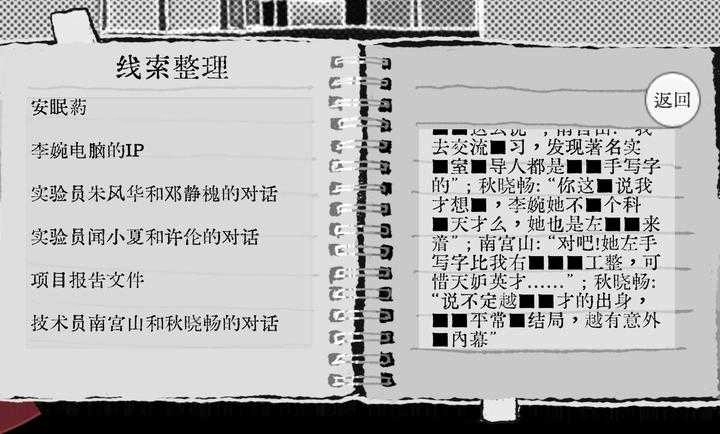 线索整理
安眠药
李婉电脑的IP
实验员朱风华和邓静槐的对话
实验员闻小夏和许伦的对话
项目报告文件
技术员南宫山和秋晓畅的对话
返回
■■这么说”；南宫山:“我
去交流■习，发现著名实
■室■导人都是■■手写字
的”；秋晓畅:“你这■说我
才想■，李婉她不■个科
■天才么，她也是左■■来
着”；南宫山:“对吧!她左手
写字比我右■■■工整，可
惜天妒英才……”；秋晓畅:
“说不定越■■才的出身，
■■平常■结局，越有意外
■内幕”